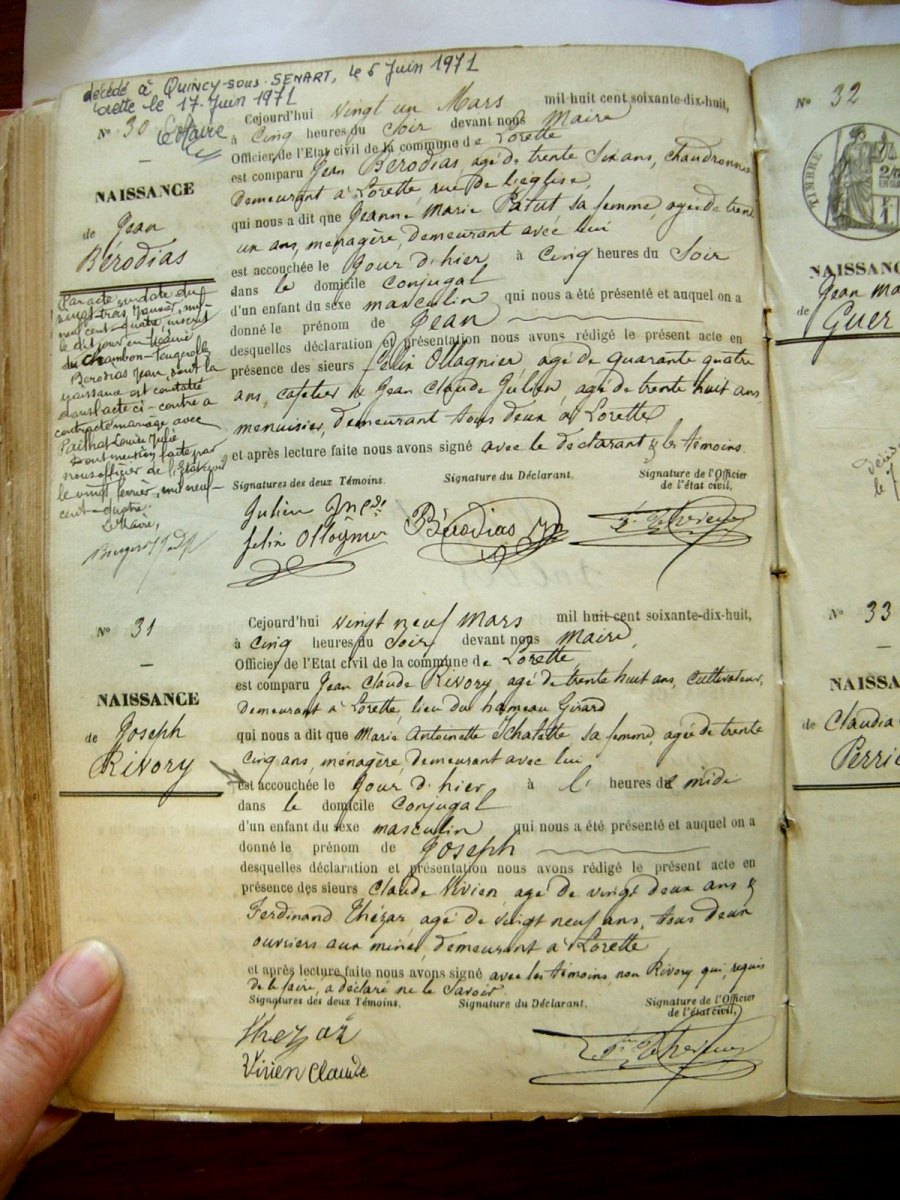 décédé à QUINCY-SOUS-SENART, le 6 Juin 1971
le 17 Juin 1971
Le Maire
N° 30
NAISSANCE
de Jean
Bérodias
Cejourd'hui vingt un Mars mil huit cent soixante-dix-huit,
à cinq heures du Soir devant nous Maire
Officier de l'Etat civil de la commune de Lorette
est comparu Jean Bérodias, agé de trente six ans, chaudronnier
demeurant à Lorette, rue de l'église,
qui nous a dit que Jeanne Marie Patut, sa femme, agée de trente
un ans, ménagère, demeurant avec lui
est accouchée le jour d'hier à cinq heures du Soir
dans le domicile conjugal
d'un enfant du sexe masculin qui nous a été présenté et auquel on a
donné le prénom de Jean
desquelles déclaration et présentation nous avons rédigé le présent acte en
présence des sieurs Félix Ollagnier agé de quarante quatre
ans, cafetier & Jean Claude Julien, agé de trente huit ans
menuisier, demeurant tous deux à Lorette
et après lecture faite nous avons signé avec le déclarant & les témoins.
Signatures des deux Témoins. Signature du Déclarant. Signature de l'Officier
de l'état civil,
Julien
felix Ollagnier Bérodias
Par acte en date du
vingt-trois Janvier, mil-
neuf cent-quatre, inscrit
le dit jour en Mairie
du Chambon-Feugerolles
Berodias Jean, dont la
naissance est constatée
dans l'acte ci-contre a
contracté mariage avec
Louise Julie
Dont mention faite par
nous officier de l'Etat civil
le vingt février, mil neuf-
cent-quatre.
Le Maire,
N° 31
NAISSANCE
de Joseph
Rivory
Cejourd'hui vingt neuf Mars mil huit cent soixante-dix-huit,
à cinq heures du Soir devant nous Maire
Officier de l'Etat civil de la commune de Lorette
est comparu Jean Claude Rivory, agé de trente huit ans, cultivateur,
demeurant à Lorette, lieu du hameau Girard
qui nous a dit que Marie Antoinette sa femme, agée de trente
cinq ans, ménagère, demeurant avec lui
est accouchée le jour d'hier à l' heures de midi
dans le domicile conjugal
d'un enfant du sexe masculin qui nous a été présenté et auquel on a
donné le prénom de Joseph
desquelles déclaration et présentation nous avons rédigé le présent acte en
présence des sieurs Claude Vivien agé de vingt deux ans &
Ferdinand Thézar agé de vingt neuf ans, tous deux
ouvriers aux mines, demeurant à Lorette
et après lecture faite nous avons signé avec les témoins, non Rivory qui, requis
de le faire, a déclaré ne le savoir.
Signatures des deux Témoins. Signature du Déclarant. Signature de l'Officier
de l'état civil,
Thezar
Vivien Claude
N° 32
TIMBRE
NAISSANC
Jean Ma
de Guer
N° 33
NAISSA
de Claudia
Perri